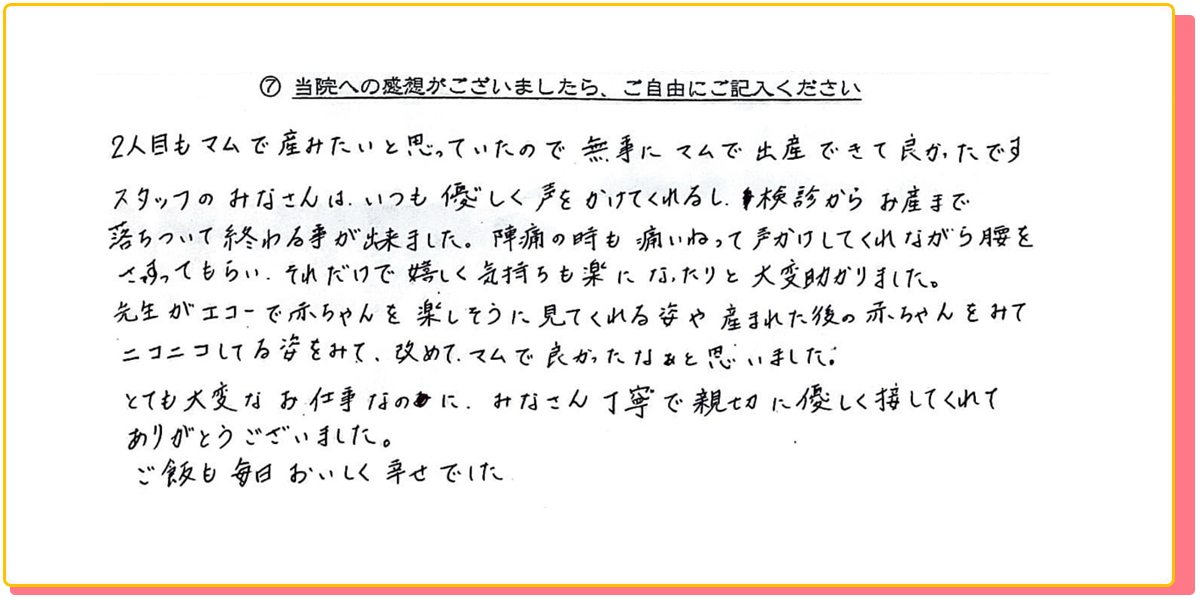 ⑦ 当院への感想がございましたら、ご自由にご記入ください
2人目もマムで産みたいと思っていたので無事にマムで出産できて良かったです
スタッフのみなさんは、いつも優しく声をかけてくれるし、検診からお産まで
落ちついて終わる事が出来ました。陣痛の時も痛いねって声かけしてくれながら腰を
さすってもらい、それだけで嬉しく気持ちも楽になったりと大変助かりました。
先生がエコーで赤ちゃんを楽しそうに見てくれる姿や産まれた後の赤ちゃんをみて
ニコニコしてる姿をみて、改めて、マムで良かったなぁと思いました。
とても大変なお仕事なのに、みなさん丁寧で親切に優しく接してくれて
ありがとうございました。
ご飯も毎日おいしく幸せでした